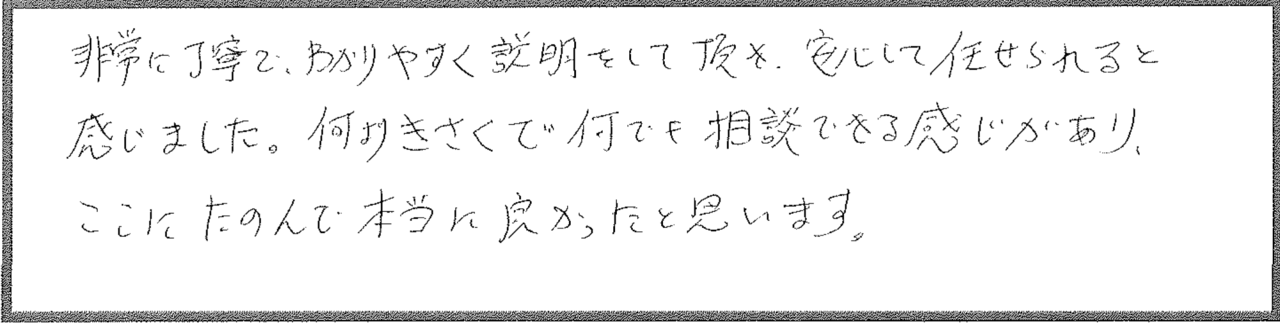 非常に丁寧で、わかりやすく説明をして頂き、安心して任せられると
感じました。何よりきさくで何でも相談できる感じがあり、
ここにたのんで本当に良かったと思います。